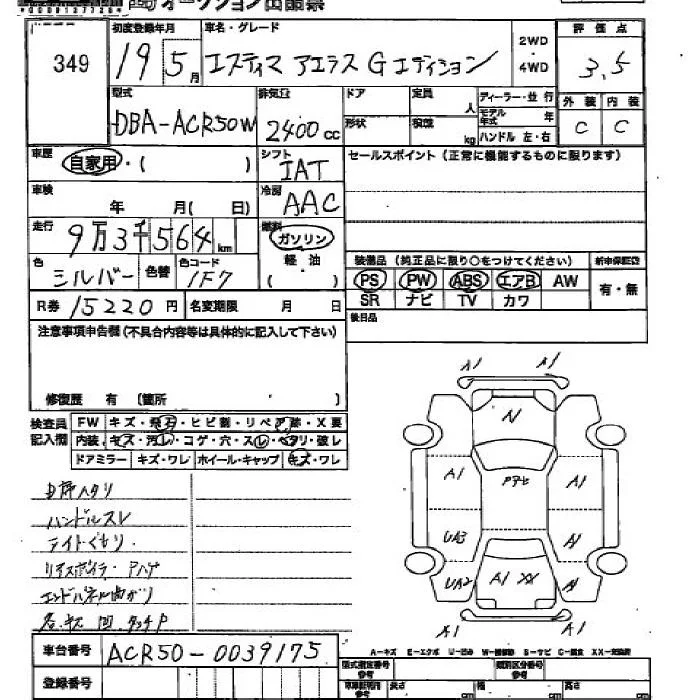 オークション出品票
349
初度登録年月 19 5月
車名・グレード エスティマ アエラス G エディション
2WD・4WD
評価点 3.5
型式 DBA-ACR50W
排気量 2400cc
ドア
定員 人
形状
積載 kg
ディーラー・並行
モデル年式 年
ハンドル 左・右
外装 内装
C C
車歴 自家用・( )
シフト IAT
セールスポイント(正常に機能するものに限ります)
車検 年 月( 日)
冷房 AAC
走行 9万3千564km
燃料 ガソリン
軽油
( )
色 シルバー 色替 色コード 1F7
装備品(純正品に限り○をつけてください)
新車保証書
PS PW ABS エアB AW
有・無
SR ナビ TV カワ
R券 15220円 名変期限 月 日
後日品
注意事項申告欄(不具合内容等は具体的に記入して下さい)
修復歴 有 〔箇所 〕
検査員記入欄
FW キズ・飛石・ヒビ割・リペア跡・X要
内装 キズ・汚レ・コゲ・穴・スレ・ヘタリ・破レ
ドアミラー キズ・ワレ ホイール・キャップ キズ・ワレ
A1 A1
N
A1 A1
UA3 A1
UA2 A1 XX A1
A1 A1
ハンドルスレ
ライトくもり
リアスポイラ・Pハゲ
エンドパネル曲がり
車台番号 ACR50-0039175
A-キズ E-エクボ U-凹み W-補修跡 S-サビ C-腐食 XX-交換済
登録番号
型式指定番号
類別区分番号
長さ cm 幅 cm 高さ cm